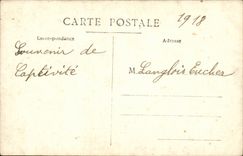 CARTE POSTALE
1918
Correspondance
Adresse
Souvenir de
Captivité
M. Langlois Eucher